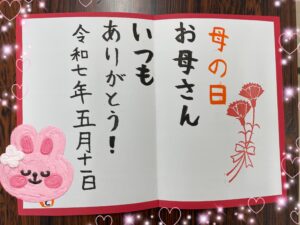 母の日
お母さん
いつも
ありがとう!
令和七年五月十一日